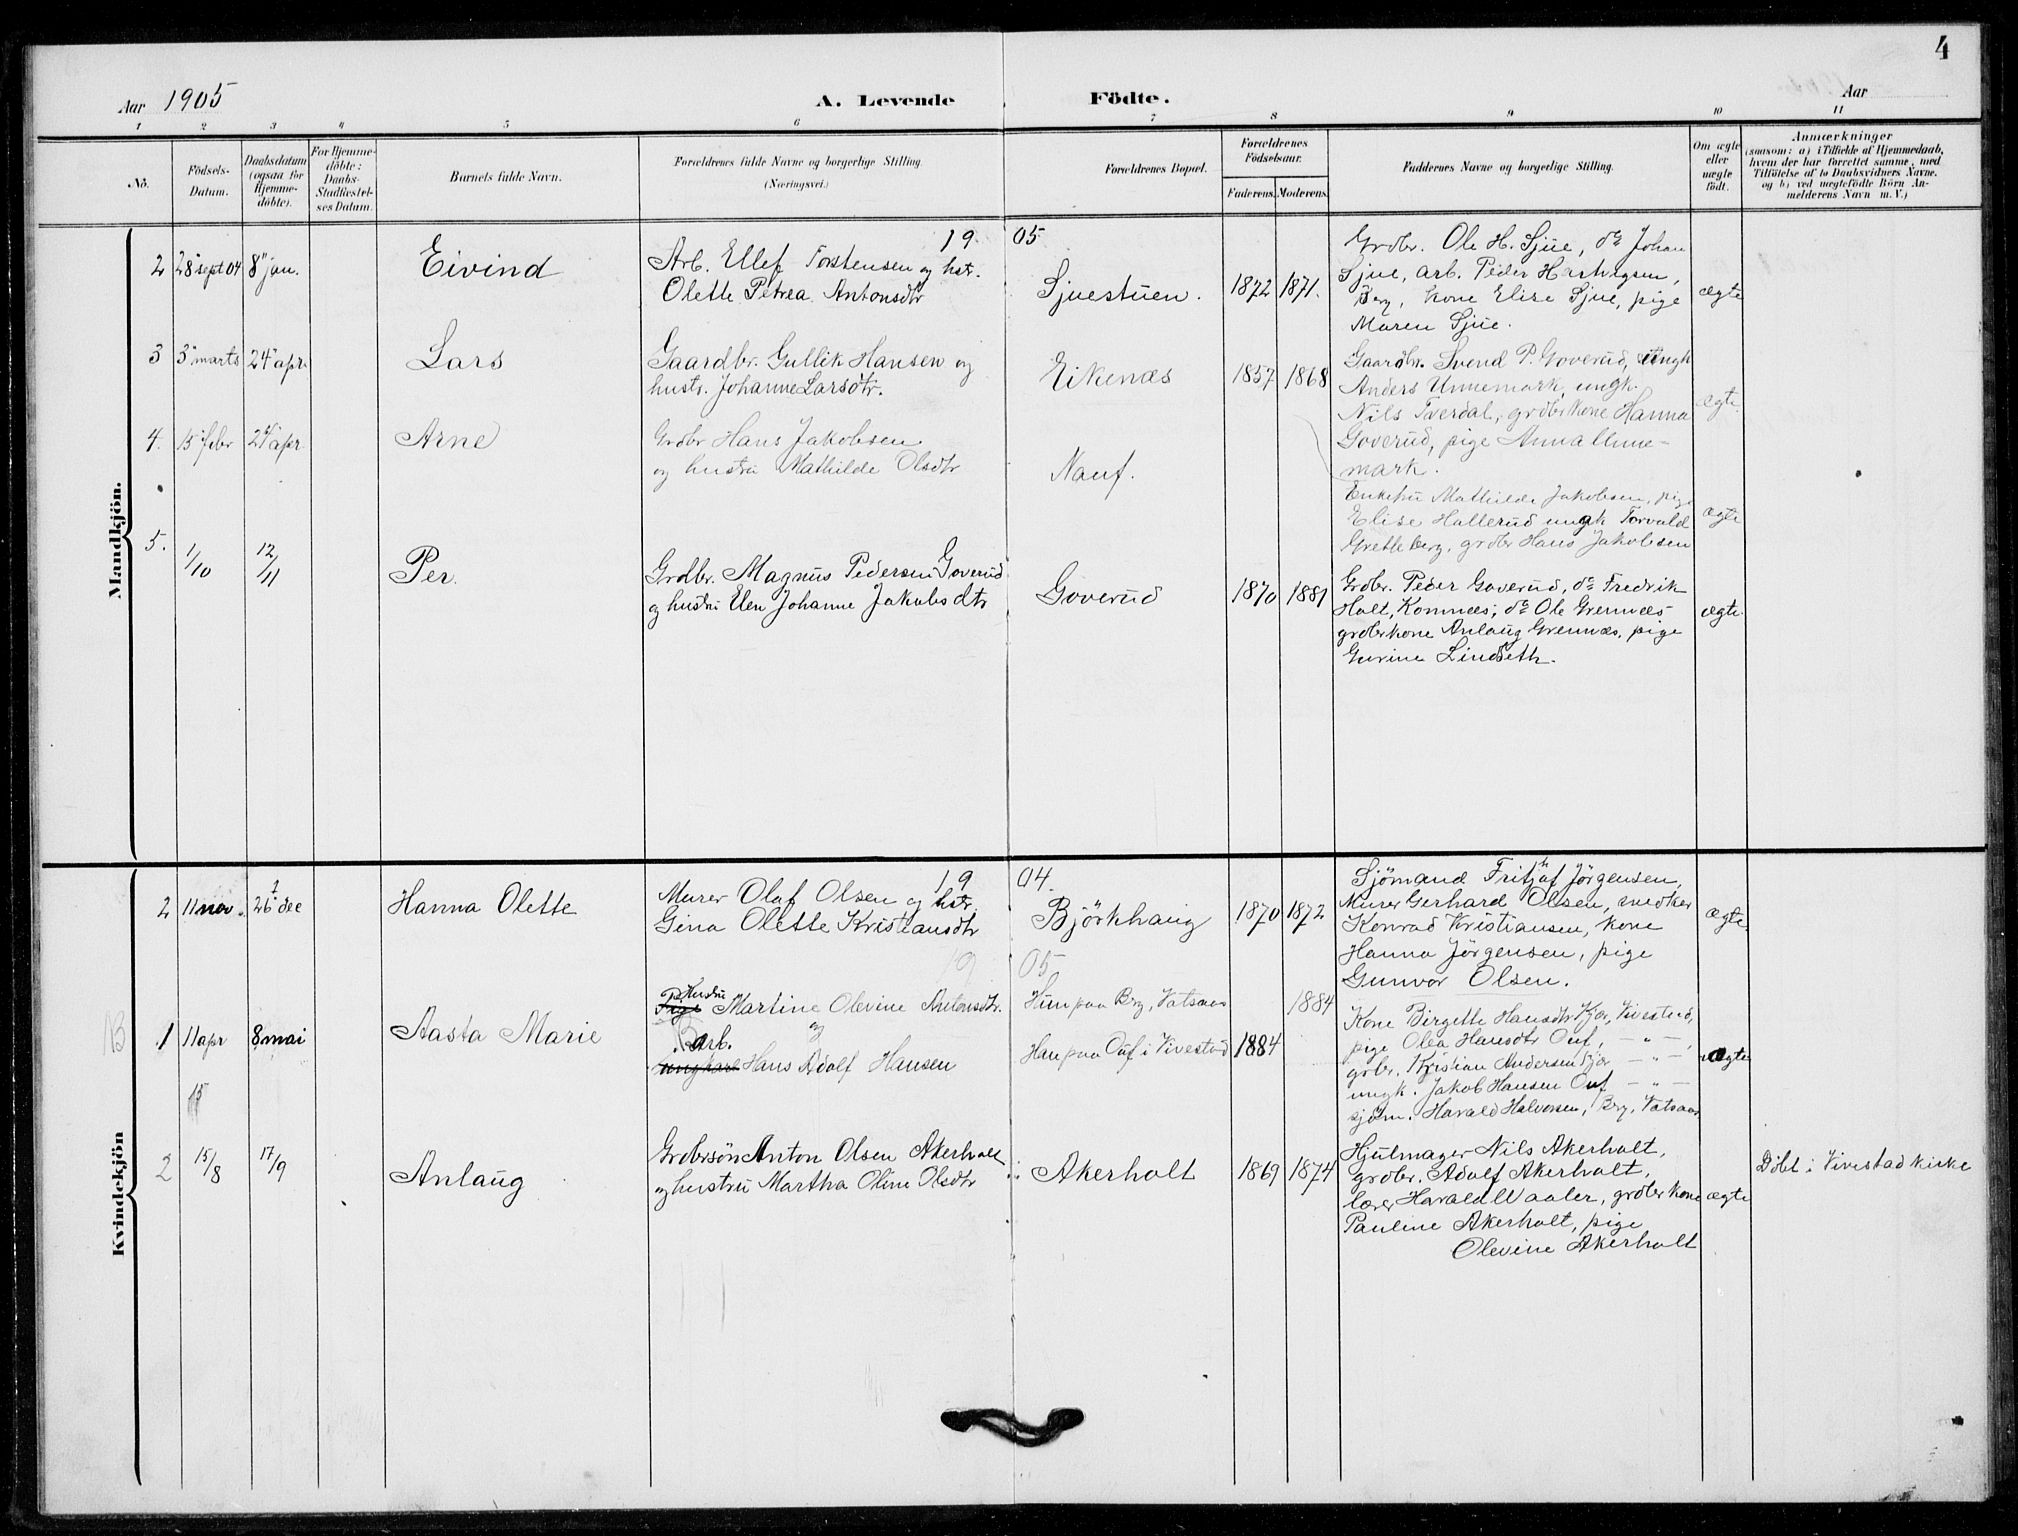 4
Aar 1905
A. Levende Födte.
Aar
1 2 3 4 5 6 7 8 9 10 11
No.
Födsels-Datum.
Daabsdatum (ogsaa for Hjemme-döbte).
For Hjemme-döbte: Daabs-Stadfæstel-ses Datum.
Barnets fulde Navn.
Forældrenes fulde Navne og borgerlige Stilling.
(Næringsvei.)
Forældrenes Bopæl.
Forældrenes Födselsaar.
Faderens. Moderens.
Faddernes Navne og borgerlige Stilling.
Om ægte eller uægte födt.
Anmærkninger
(saasom: a) i Tilfælde af Hjemmedaab,
hvem der har forrettet samme, med
Tilföielse af to Daabsvidners Navne,
og b) ved uægtefödte Börn An-
melderens Navn m. V.)
Mandkjön.
1905
2 28 sept 04 8 jan. Eivind
Arb. Ellef Torstensen og hst.
Olette Petrea Antonsdtr
Sjuestuen. 1872 1871.
Grdbr. Ole H. Sjue, do Johan
Sjue, arb. Peder Hartvigsen,
Berg, kone Elise Sjue, pige
Maren Sjue.
ægte
3 3 marts 24 apr. Lars
Gaardbr. Gullik Hansen og
hustr. Johanne Larsdtr.
Eikenæs 1857 1868
Gaardbr. Svend P. Goverud, ungk
Anders Unnemark, ungk.
Nils Tverdal, grdbrkone Hanna
Goverud, pige Anna Unne-
mark.
ægte.
4. 15 febr 24 apr. Arne
Grdbr Hans Jakobsen
og hustru Mathilde Olsdtr
Nauf.
Enkefru Mathilde Jakobsen, pige
Elise Hallerud ungk Torvald
Gretteberg, grdbr Hans Jakobsen
ægte
5. 1/10 12/11 Per.
Grdbr. Magnus Pedersen Goverud
og hustru Elen Johanne Jakobsdtr
Goverud 1870 1881
Grdbr. Peder Goverud, do Fredrik
Holt, Komnæs, do Ole Grennæs
grdbrkone Anlaug Grennæs, pige
Gurine Lindseth.
ægte.
Kvindekjön
1904.
2 11 nov. 26 dec Hanna Olette
Murer Olaf Olsen og hstr.
Gina Olette Kristiansdtr
Björkhaug 1870 1872
Sjömand Fritjof Jørgensen,
Murer Gerhard Olsen, snedker
Konrad Kristiansen, kone
Hanna Jörgensen, pige
Gunvor Olsen.
ægte
1905
1 11 apr 8 mai Aasta Marie
Hustru
Pige Martine Olevine Antonsdtr.
og
Arb.
Ungkarl Hans Adolf Hansen
Hun paa Berg, Vatsaas 1884
Han paa Ouf i Vivestad 1884
Kone Birgette Hansdtr Kjær, Vivestad,
pige Olea Hansdtr Ouf, — " —,
grbr. Kristian Andersen Kjær — " —
ungk. Jakob Hansen Ouf — " —
sjöm. Harald Halvorsen, Berg, Vatsaas
ægte
15
2 15/8 17/9 Anlaug
Grdbrsön Anton Olsen Akerholt
og hustru Martha Oline Olsdtr
Akerholt 1869 1874
Hjulmager Nils Akerholt,
grdbr. Adolf Akerholt,
lærer Harald Waaler, grdbrkone
Pauline Akerholt, pige
Olevine Akerholt
ægte
Döbt i Vivestad kirke